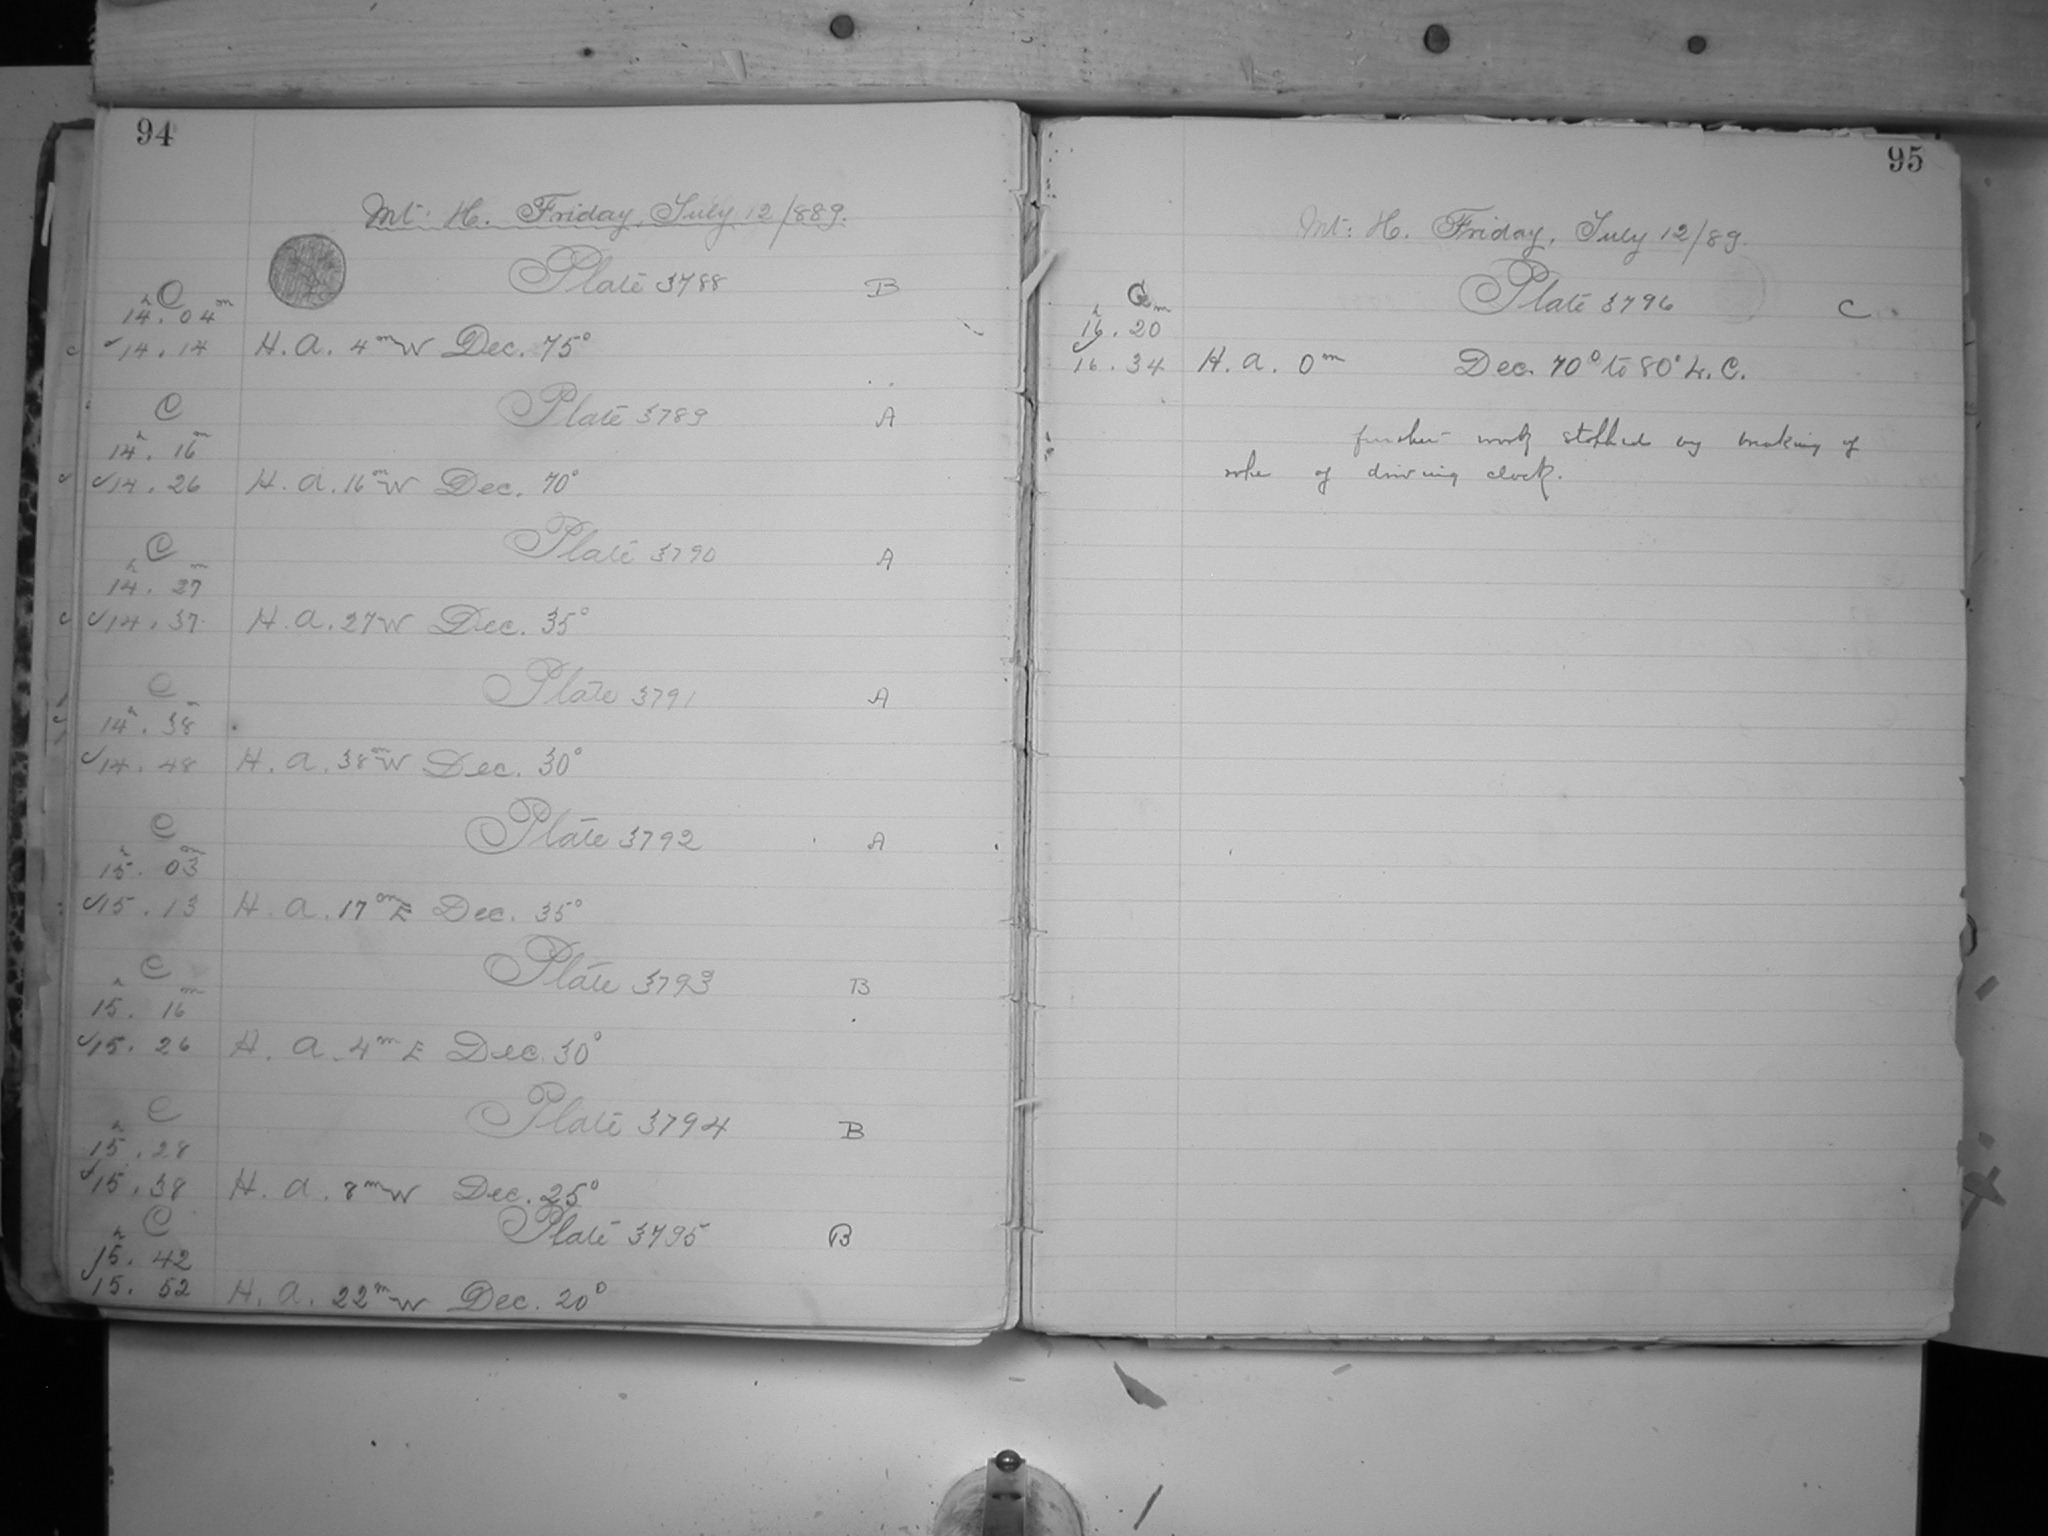 94
Mt. H. Friday, July 12/889.
Plate 3788 B
C
14h. 04m
✓14. 14 H. A. 4m W Dec. 75°
C Plate 3789 A
14h. 16m
✓14. 26 H. A. 16m W Dec. 70°
C Plate 3790 A
14h. 27m
✓14. 37 H. A. 27 W Dec. 35°
C Plate 3791 A
14h. 38m
✓14. 48 H. A. 38m W Dec. 30°
C Plate 3792 A
15h. 03m
✓15. 13 H. A. 17m E Dec. 35°
C Plate 3793 B
15h. 16m
✓15. 26 H. A. 4m E Dec. 30°
C Plate 3794 B
15h. 28
✓15. 38 H. A. 8m W Dec. 25°
C Plate 3795 B
15h. 42
15. 52 H. A. 22m W Dec. 20°
95
Mt: H. Friday, July 12/89.
Plate 3796 C
16h. 20m
16. 34 H. A. 0m Dec. 70° to 80° L. C.
further work stopped by breaking of
of driving clock.